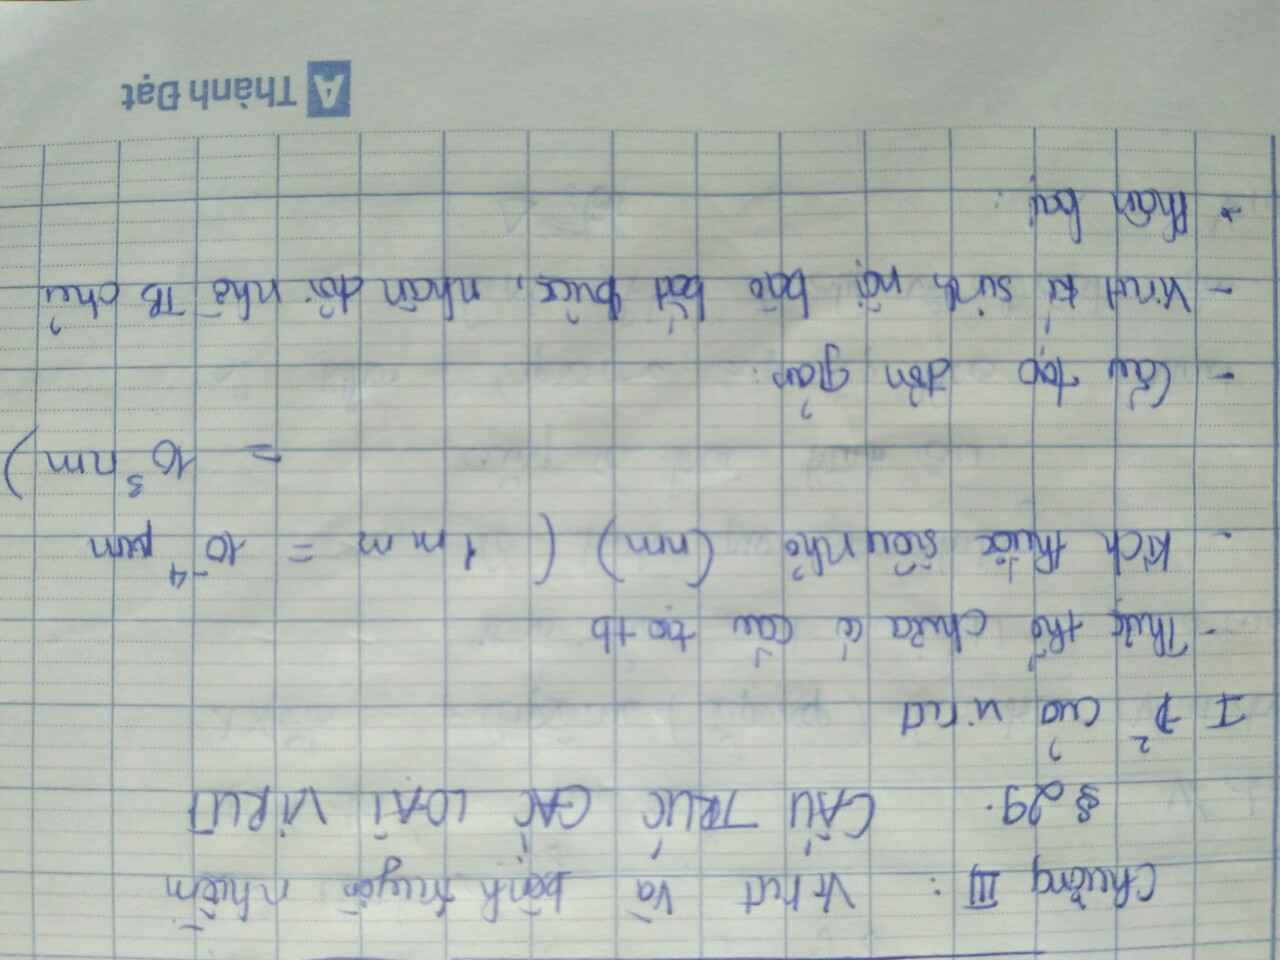 Chương III: Virut và bệnh truyền nhiễm
§ 29. CẤU TRÚC CÁC LOẠI VIRUT
I P² của virut
- Thực thể chưa có cấu tạo tb
- Kích thước siêu nhỏ (nm) ( 1 mm = 10⁻⁴ μm
= 10³ nm)
- Cấu tạo đơn giản:
- Virut kí sinh nội bào bắt buộc, nhân đôi nhờ TB chủ
* Phân loại:
A Thành Đạt